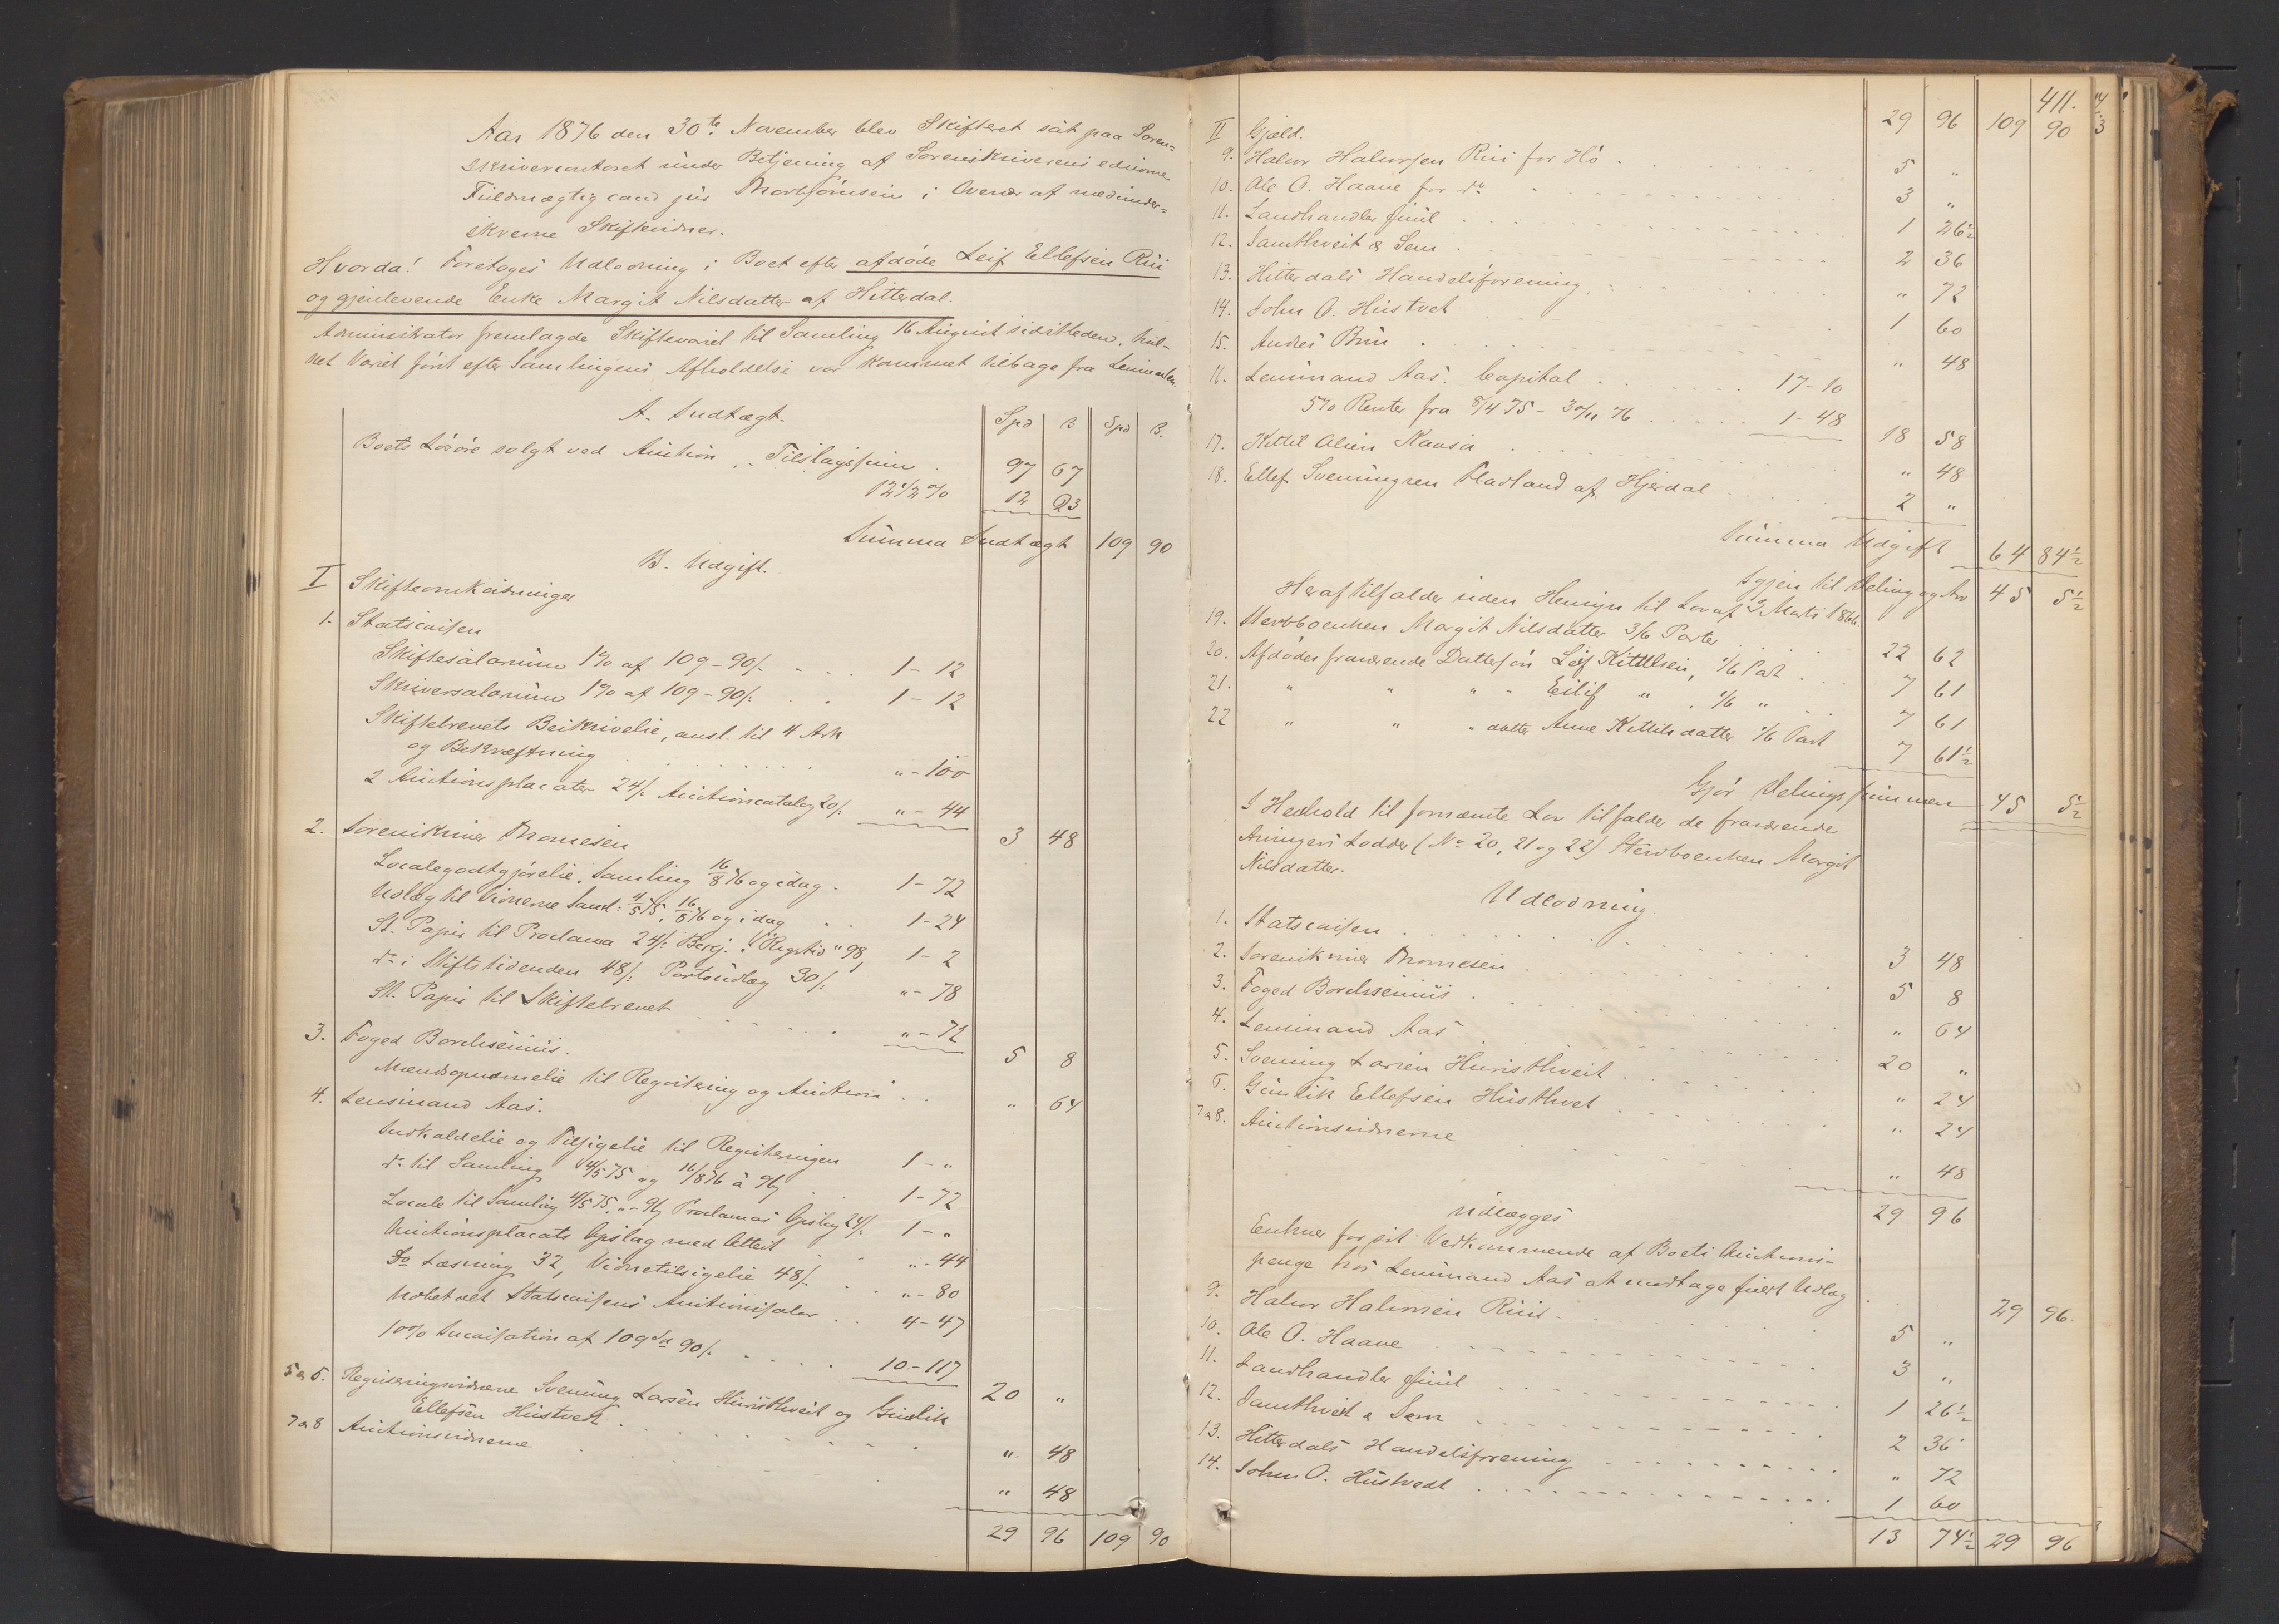 Aar 1876 den 30te November blev Skifteret sat paa Soren=
skrivercontoret under Betjening af Sorenskriverens edsvorne
Fuldmægtig cand jur Thorbjørnsen i Overvær af medunder=
skrevne Skiftevidner.
Hvorda! Foretoges Udlodning i Boet efter afdøde Leif Ellefsen Rui
og gjenlevende Enke Margit Nilsdatter af Hitterdal.
Administrator fremlagde Skiftevarsel til Samling 16 August sidstleden, hvil-
ket Varsel først efter Samlingens Afholdelse var kommet tilbage fra Lensmanden.
A. Indtægt. Spd B Spd B.
Boets Løsøre solgt ved Auktion, Tilslagssum . 97 67
12 1/2 % 12 23
Summa Indtægt 109 90
B. Udgift.
I Skifteomkostninger
1. Statscassen
Skiftesalarium 1% af 109-90/: . . . 1-12
Skriversalarium 1% af 109-90/: . 1-12
Skiftebrevets Beskrivelse, ansl. til 4 Ark
og Bekræftning . . . . . . . " - 100
2 Auctionsplacater 24/: Auctionscatalog 20/: " - 44
3 48
2. Sorenskriver Thomesen
Localegodtgjørelse, Samling 16/8 76 og idag . 1-72
Udlæg til Vidnerne Saml: 4/5 75, 16/8 76 og idag . . 1-24
St. Papir til Proclama 24/: Berj. i Rigstid " 98, 1-2
do i Stiftstidenden 48/: Portoudlæg 30/: " - 78
St. Papir til Skiftebrevet . . . . . . " - 72
5 8
3. Foged Borchsenius.
Mændsopnævnelse til Registering og Auction . . " 64
4. Lensmand Aas.
Indkaldelse og Tilsigelse til Registeringen 1 - "
do til Samling 4/5 75 og 16/8 76 à 96 . . 1-72
Locale til Samling 4/5 75. " - 96 Proclamas Opslag 24/: 1 - "
Auctionsplacats Opslag med Attest . . " - 44
Do Læsning 32, Vidnetilsigelse 48/: . . " - 80
Udbetalt Statscassens Auctionssalær . . 4-47
10% Incassation af 109 Spd 90/: . . . . . 10-117
20 "
5 & 6. Registeringsvidnerne Svenung Larsen Hunsthveit og Gunlik
Ellefsen Hustvedt . . . . . . . . " 48
7 & 8 Auctionsvidnerne . . . . " 48
29 96 109 90
411.
29 96 109 90
II Gjæld.
9. Halvor Halvorsen Rui for Hø . . . 5 "
10. Ole O. Haave for do . . . 3 "
11. Landhandler Juul . . . 1 26 1/2
12. Samthveit & Sem . . . 2 36
13. Hitterdals Handelsforening . . . " 72
14. John O. Hustvet . . . 1 60
15. Andres Bruu . . . " 48
16. Lensmand Aas. Capital . . . 17-10
5% Renter fra 8/4 75 - 30/11 76 . . . 1-48
18 58
17. Kittil Olsen Kaasa . . . " 48
18. Ellef Svenungsen Fladland af Hjerdal . . . 2 "
Summa Udgift 64 84 1/2
Igjen til Deling og Arv 45 5 1/2
Heraf tilfalder uden Hensyn til Lov af 3 Marts 1866.
19. Stervboenken Margit Nilsdatter 3/6 Parter . . . 22 62
20. Afdødes fraværende Dattersøn Leif Kittilsen, 1/6 Part . . . 7 61
21. " " " " Eilif " . 1/6 " . . 7 61
22 " " " datter Anne Kittilsdatter 1/6 Part 7 61 1/2
Gjør Delingssummen 45 5 1/2
I Henhold til fornævnte Lov tilfalder de fraværende
Arvingers Lodder (No 20, 21 og 22) Stervboenken Margit
Nilsdatter.
Udlodning.
1. Statscassen . . . 3 48
2. Sorenskriver Thomesen . . . 5 8
3. Foged Borchsenius . . . " 64
4. Lensmand Aas . . . 20 "
5. Svenung Larsen Hunsthveit . . . " 24
6. Gunlik Ellefsen Husthvet . . . " 24
7 & 8. Auctionsvidnerne . . . " 48
udlægges 29 96
Enhver for sit Vedkommende af Boets Auctions-
penge hos Lensmand Aas at modtage fuldt Udlæg . 29 96.
9. Halvor Halvorsen Rui . . . 5 "
10. Ole O. Haave . . . 3 "
11. Landhandler Juul . . . 1 26 1/2
12. Samthveit & Sem . . . 2 36
13. Hitterdals Handelsforening . . . " 72
14. John O. Hustvedt . . . 1 60
13 74 1/2 29 96